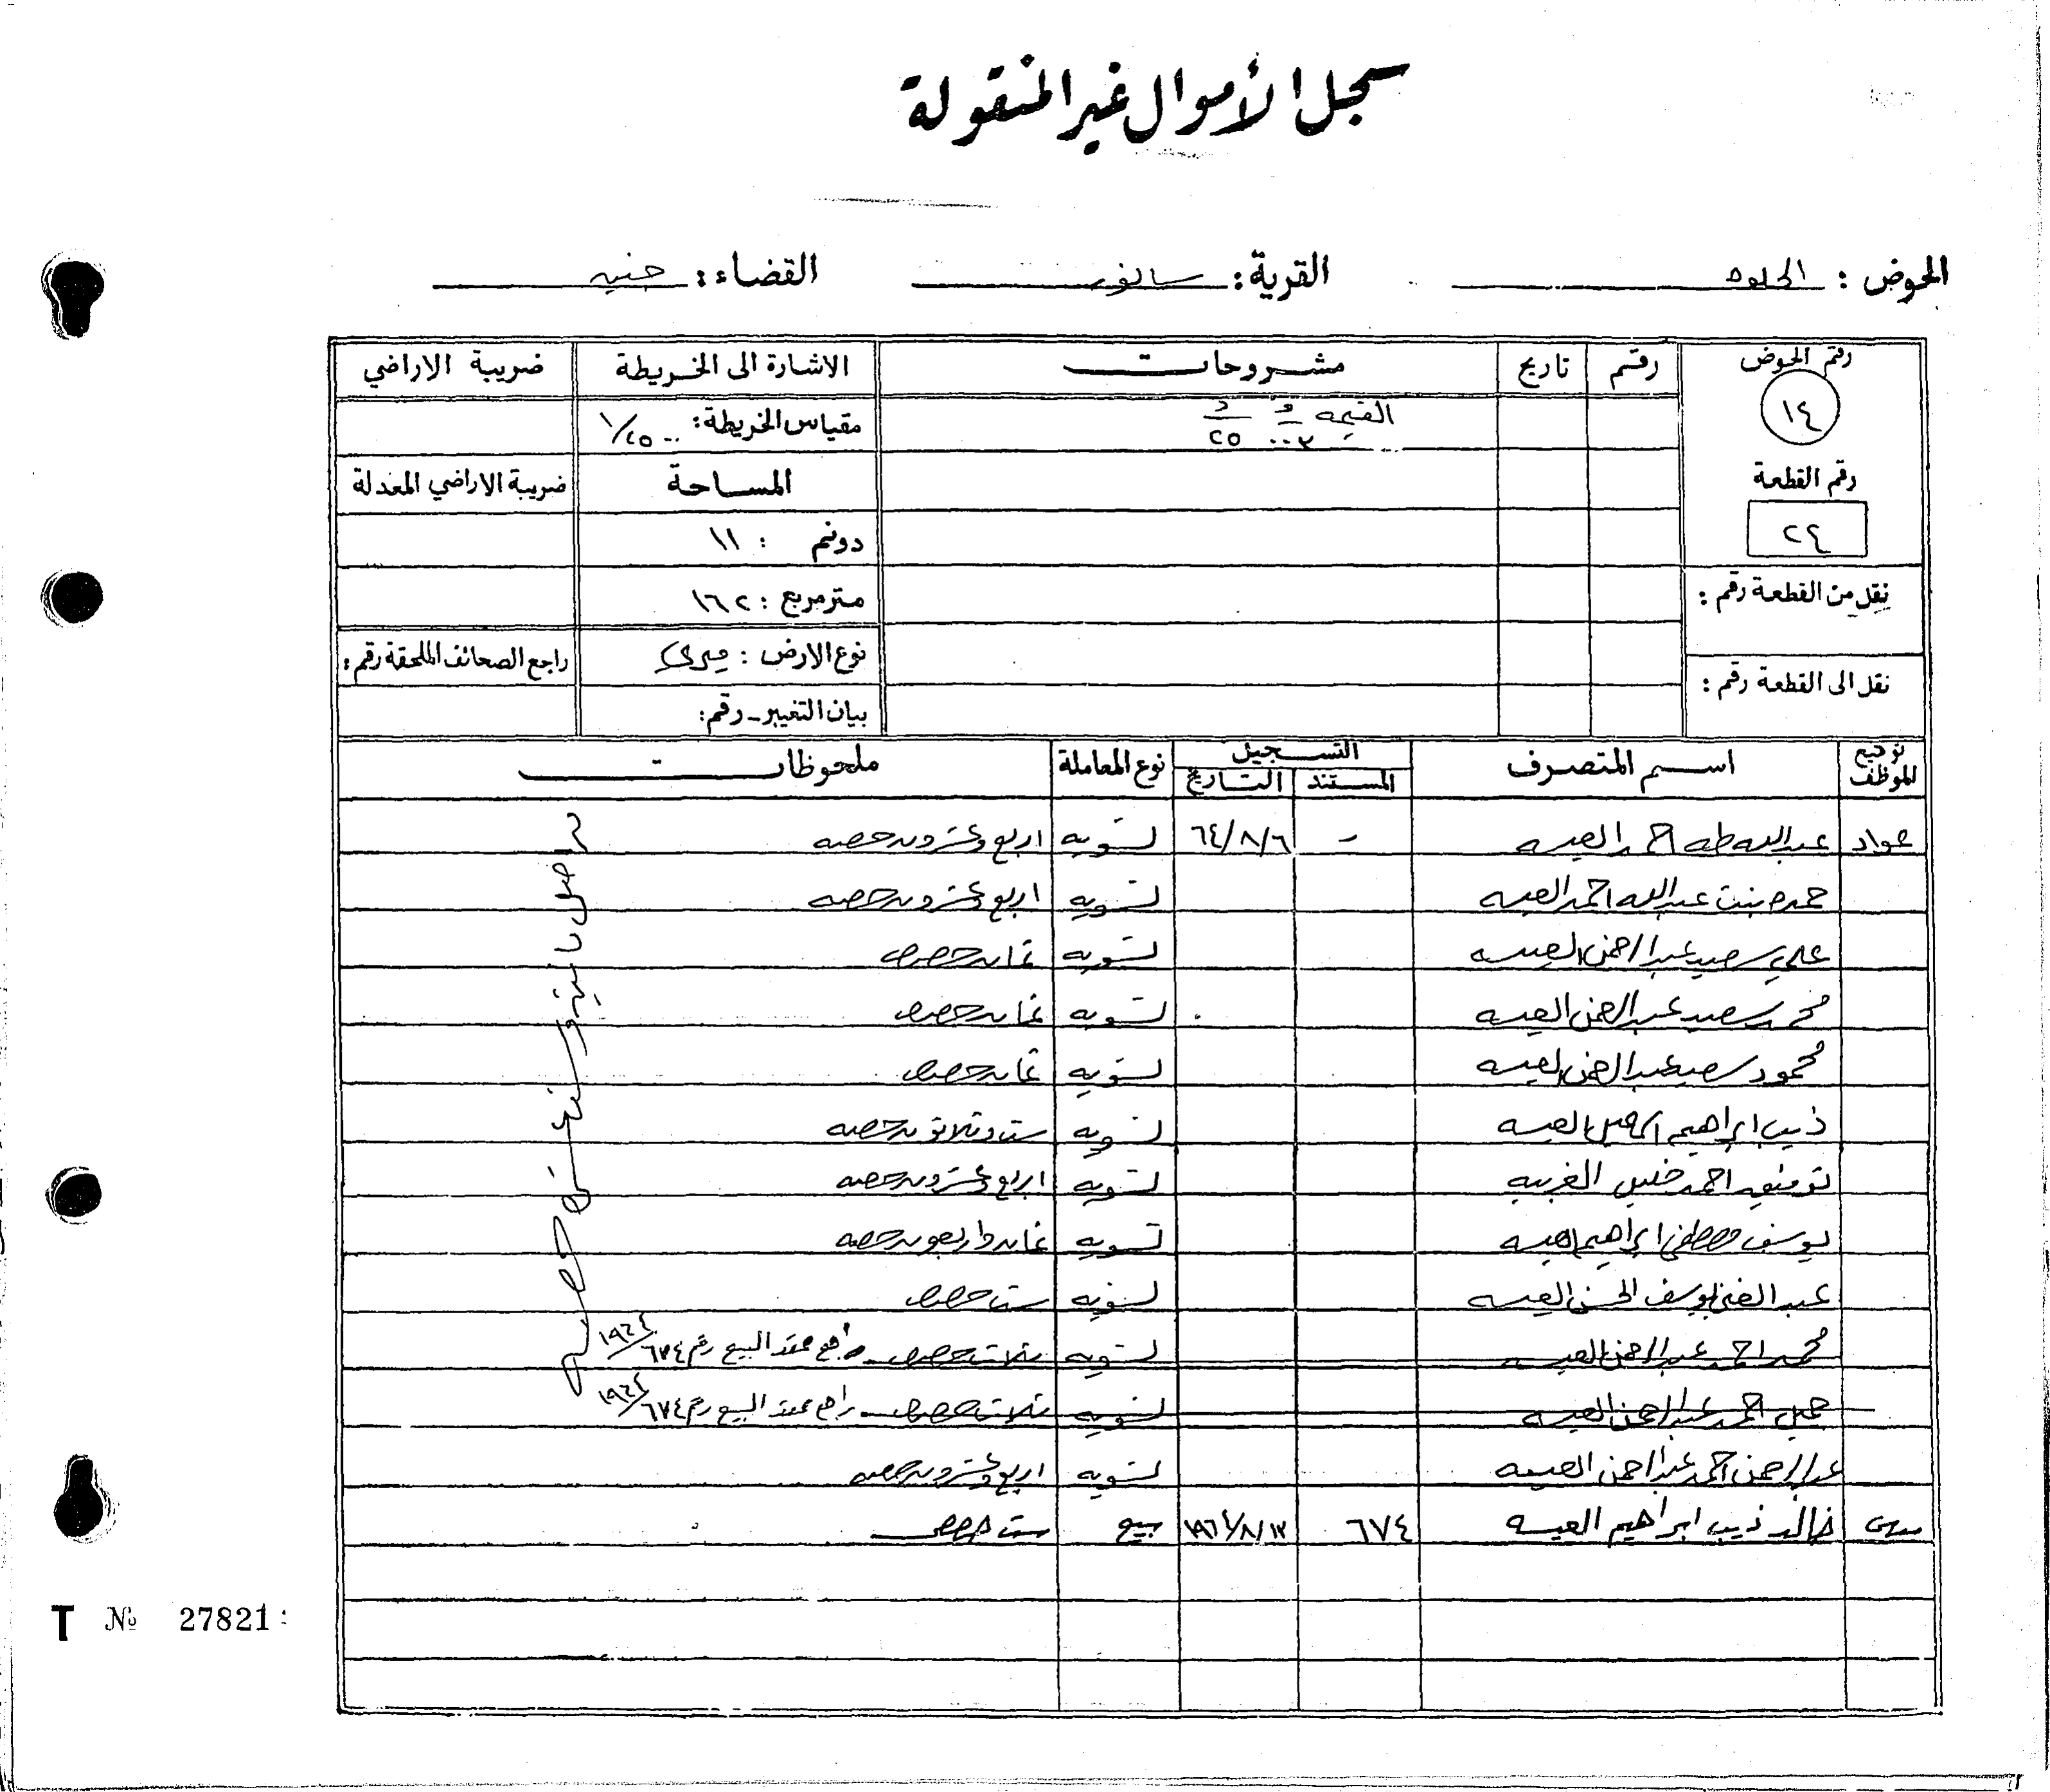 سجل الأموال غير المنقولة
الحوض : القرية : سانور القضاء : جنين
رقم الحوض رقم تاريخ مشروحات الاشارة الى الخريطة ضريبة الاراضي
١٤ القيمه مقياس الخريطة : ١/٢٥٠٠
رقم القطعة المساحة ضريبة الاراضي المعدلة
٢٤ دونم : ١١
نقل من القطعة رقم : مترمربع : ١٦٢
نوع الارض : ميري راجع الصحائف الملحقة رقم :
نقل الى القطعة رقم :
بيان التغيير - رقم :
توقيع الموظف اسم المتصرف التسجيل نوع المعاملة ملحوظات
المستند التاريخ
عواد عبدالله طه احمد العيسه - ٦٤/٨/٦ تسويه اربع وعشرون حصه
حمده بنت عبدالله احمد العيسه تسويه اربع وعشرون حصه
علي سعيد عبدالرحمن العيسه تسويه ثمان حصص
محمد سعيد عبدالرحمن العيسه تسويه ثمان حصص
محمود سعيد عبدالرحمن العيسه تسويه ثمان حصص
ذيب ابراهيم العيسه تسويه ست وثلاثون حصه
توفيق احمد خليل تسويه اربع وعشرون حصه
يوسف مصطفى ابراهيم العيسه تسويه ثمان واربعون حصه
عبد الغني يوسف الحسن العيسه تسويه ست حصص
محمد احمد عبدالرحمن العيسه تسويه ثلاث حصص - راجع عقد البيع رقم ٦٧٤/١٩٦٤
جميل احمد عبدالرحمن العيسه تسويه ثلاث حصص - راجع عقد البيع رقم ٦٧٤/١٩٦٤
عبدالرحمن احمد عبدالرحمن العيسه تسويه اربع وعشرون حصه
خالد ذيب ابراهيم العيسه ٦٧٤ ١٩٦٤/٨/١٢ بيع ست حصص
من اصل مايتين وستة عشر حصه
T № 27821